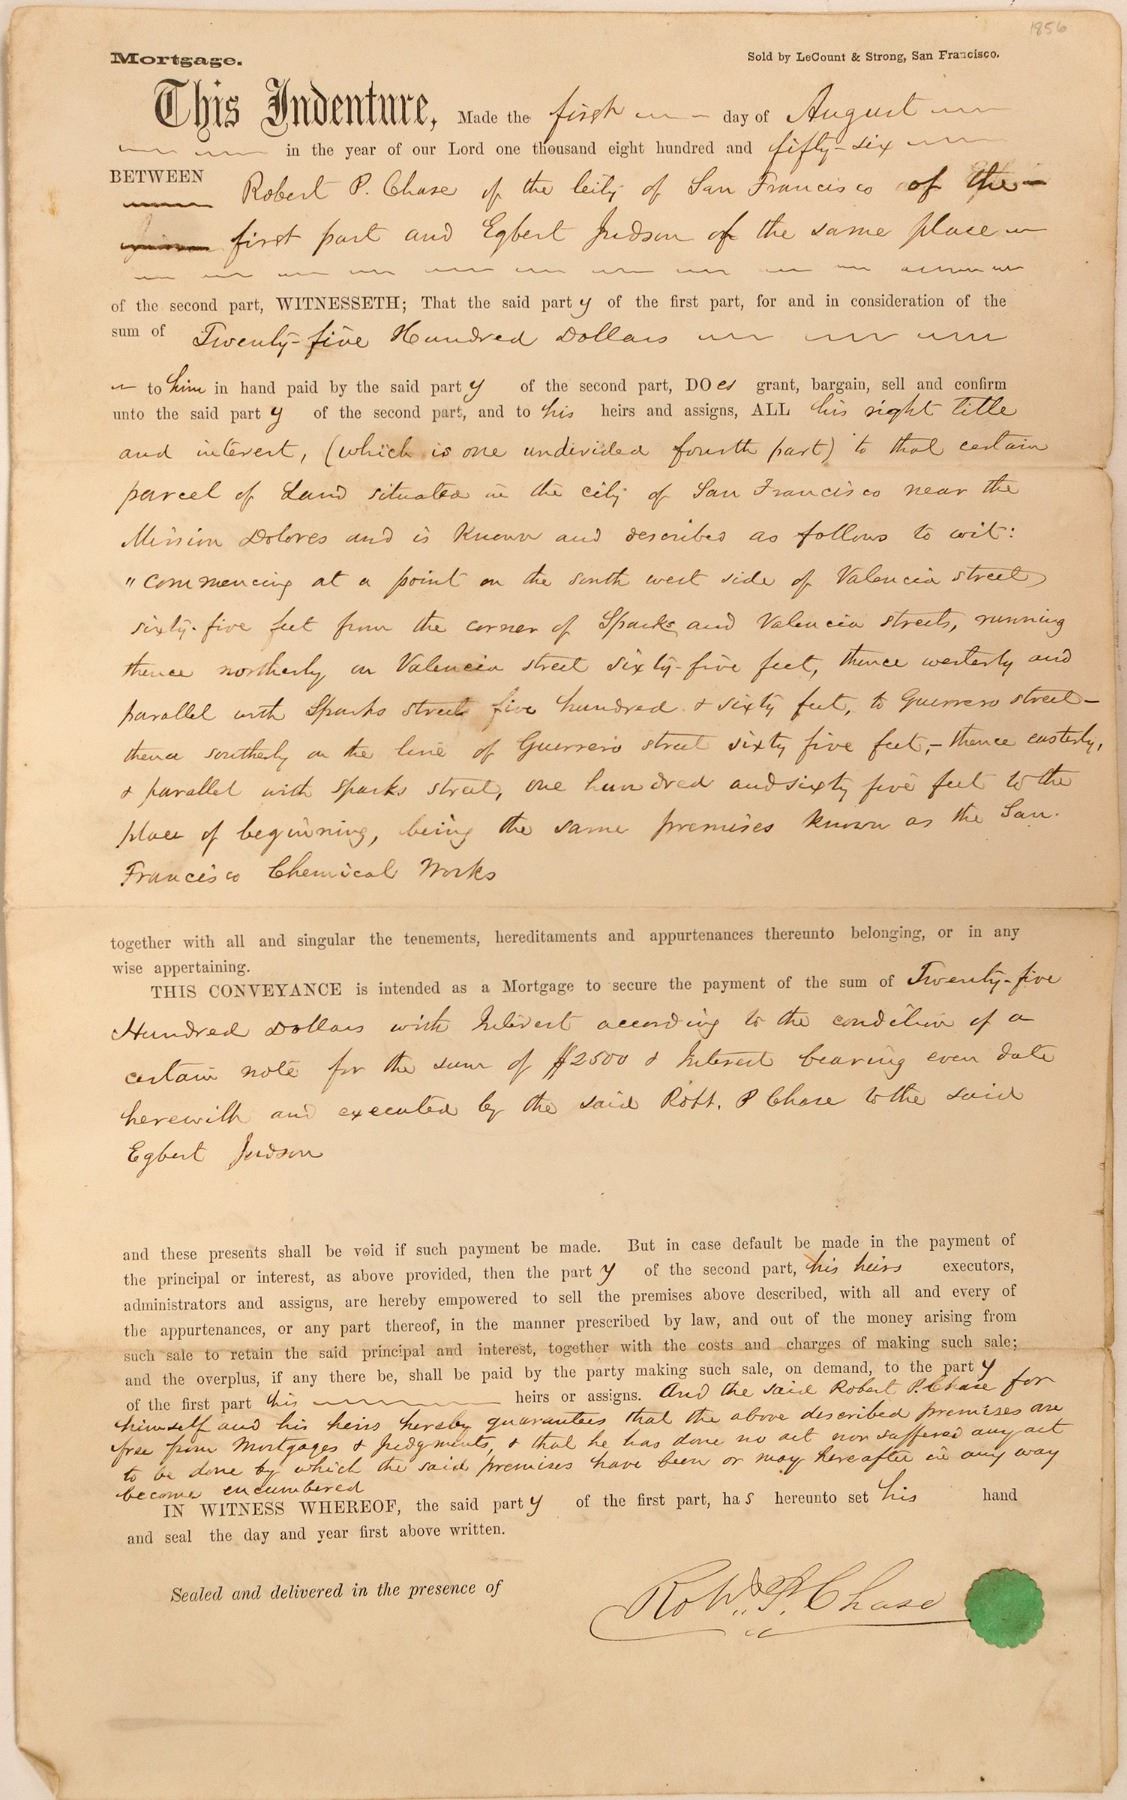 1856
Mortgage. Sold by LeCount & Strong, San Francisco.
This Indenture, Made the first day of August
in the year of our Lord one thousand eight hundred and fifty-six
BETWEEN Robert P. Chase of the City of San Francisco of the
first part and Egbert Judson of the same place
of the second part, WITNESSETH; That the said party of the first part, for and in consideration of the
sum of Twenty-five Hundred Dollars
to him in hand paid by the said party of the second part, DOes grant, bargain, sell and confirm
unto the said party of the second part, and to his heirs and assigns, ALL his right title
and interest, (which is one undivided fourth part) to that certain
parcel of Land situated in the city of San Francisco near the
Mission Dolores and is Known and described as follows to wit:
"Commencing at a point on the south west side of Valencia street
sixty-five feet from the corner of Sparks and Valencia streets, running
thence northerly on Valencia street sixty-five feet, thence westerly and
parallel with Sparks street five hundred & sixty feet, to Guerrero street-
thence southerly on the line of Guerrero street sixty five feet,- thence easterly,
& parallel with Sparks street, one hundred and sixty five feet to the
place of beginning, being the same premises known as the San
Francisco Chemical Works
together with all and singular the tenements, hereditaments and appurtenances thereunto belonging, or in any
wise appertaining.
THIS CONVEYANCE is intended as a Mortgage to secure the payment of the sum of Twenty-five
Hundred Dollars with Interest according to the condition of a
certain note for the sum of $2500 & Interest bearing even date
herewith and executed by the said Robt. P Chase to the said
Egbert Judson
and these presents shall be void if such payment be made. But in case default be made in the payment of
the principal or interest, as above provided, then the party of the second part, his heirs executors,
administrators and assigns, are hereby empowered to sell the premises above described, with all and every of
the appurtenances, or any part thereof, in the manner prescribed by law, and out of the money arising from
such sale to retain the said principal and interest, together with the costs and charges of making such sale;
and the overplus, if any there be, shall be paid by the party making such sale, on demand, to the party
of the first part his heirs or assigns. And the said Robert P. Chase for
himself and his heirs hereby guarantees that the above described premises are
free from Mortgages & Judgments, & that he has done no act nor suffered any act
to be done by which the said premises have been or may hereafter in any way
become encumbered
IN WITNESS WHEREOF, the said party of the first part, has hereunto set his hand
and seal the day and year first above written.
Sealed and delivered in the presence of
Robt. P. Chase